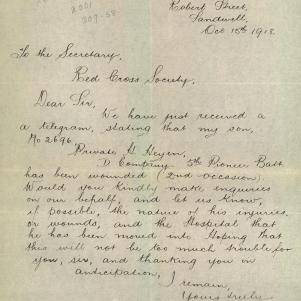 2001
309-58
Robert Street,
Sandwell,
Oct 15th 1918.
To the Secretary,
Red Cross Society,
Dear Sir,
We have just received a
a telegram, stating that my son,
No 2696,
Private H Heyen,
D Company 5th Pioneer Batt
has been wounded (2nd occasion).
Would you kindly make enquiries
on our behalf, and let us know,
if possible, the nature of his injuries
or wounds, and the Hospital that
he has been moved into. Hoping that
this will not be too much trouble for
you, sir, and thanking you in
anticipation,
I remain,
Yours truly